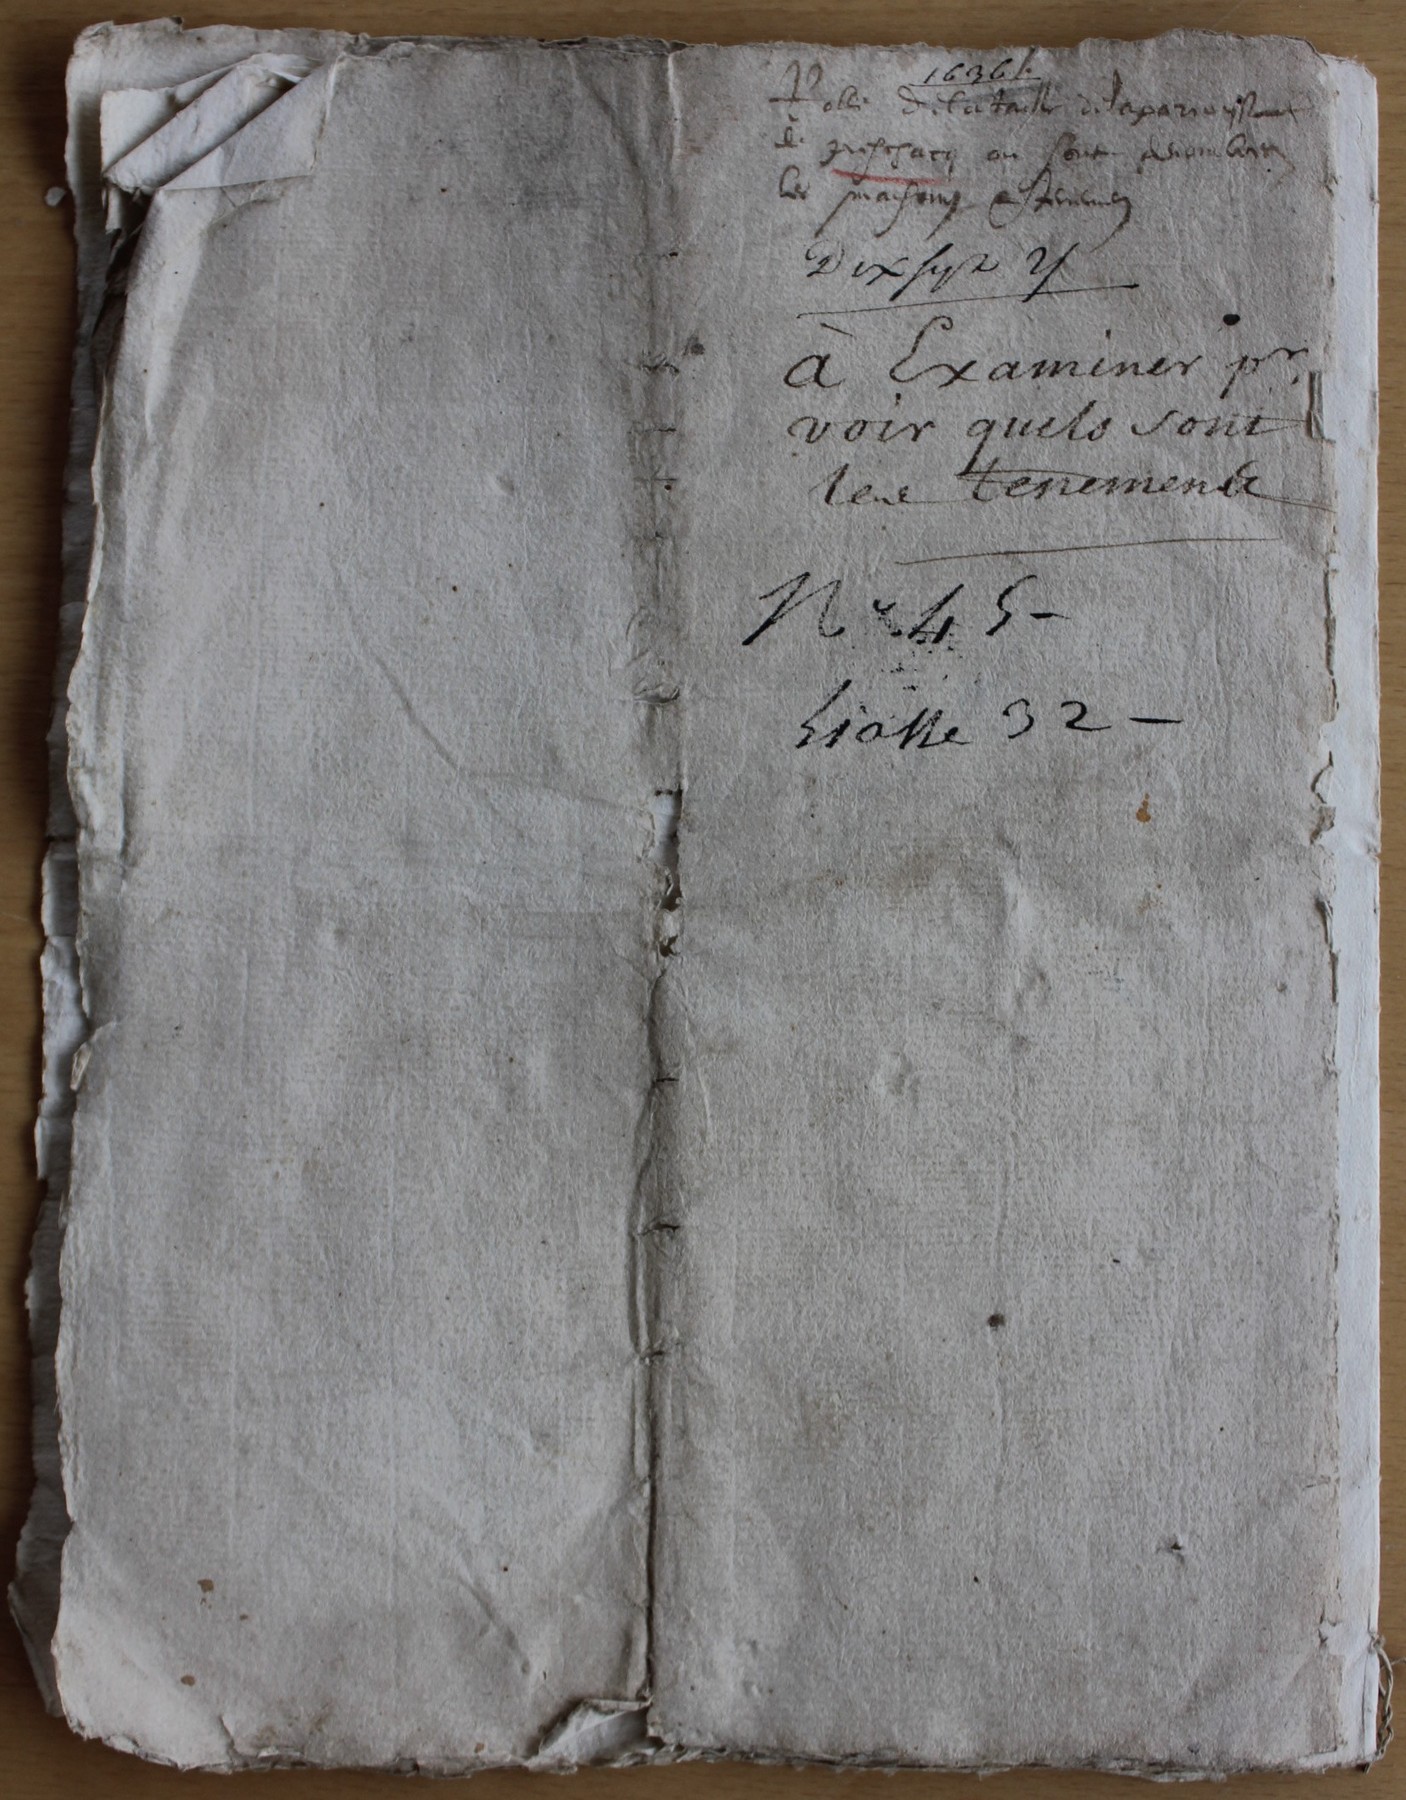 1636
Rolle de la taille de la parroisse
de ou sont denombrees
les maisons et tenemens
Dix sept
à Examiner pr.
voir quels sont
les tenements
N° 45 -
Liasse 32 -